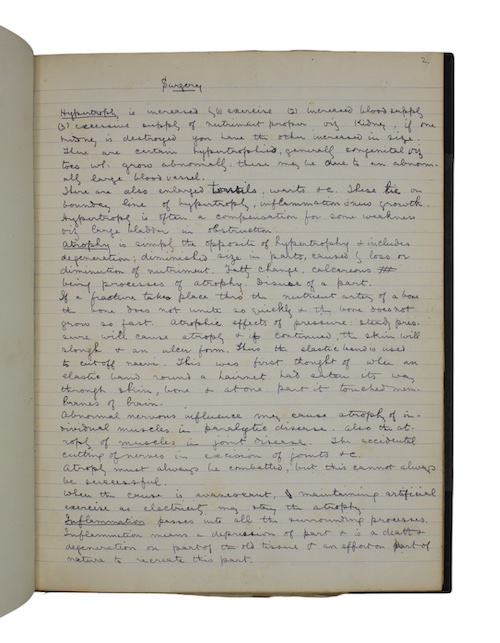 2
Surgery
Hypertrophy is increased by (1) exercise (2) increased blood supply
(3) excessive supply of nutriment proper. viz Kidney, if one
kidney is destroyed you have the other increased in size.
There are certain hypertrophied, generally congenital viz
toes wh: grow abnormally: there may be due to an abnorm-
ally large blood vessel.
There are also enlarged tonsils, warts &c. These lie on
boundary line of hypertrophy, inflammation & new growth.
Hypertrophy is often a compensation for some weakness
viz large bladder in obstruction.
Atrophy is simply the opposite of hypertrophy & includes
degeneration; diminished size in parts, caused by loss or
diminution of nutriment. Fatty change, calcareous
being processes of atrophy. Disuse of a part.
If a fracture takes place thro the nutrient artery of a bone
the bone does not unite so quickly & the bone does not
grow so fast. Atrophic effects of pressure: steady pres-
sure will cause atrophy & if continued, the skin will
slough & an ulcer form. Thus the elastic band is used
to cut off naevi. This was first thought of when an
elastic band round a hairnet had eaten its way
through skin, bone & at one part it touched mem-
branes of brain.
Abnormal nervous influence may cause atrophy of in-
dividual muscles in paralytic disease. Also the at-
rophy of muscles in joint disease. The accidental
cutting of nerves in excision of joints &c.
Atrophy must always be combatted, but this cannot always
be successful.
When the cause is evanescent, maintaining artificial
exercise as electricity may stay the atrophy.
Inflammation passes into all the surrounding processes.
Inflammation means a depression of part & is a death &
degeneration on part of the old tissue & an effort on part of
nature to recreate this part.